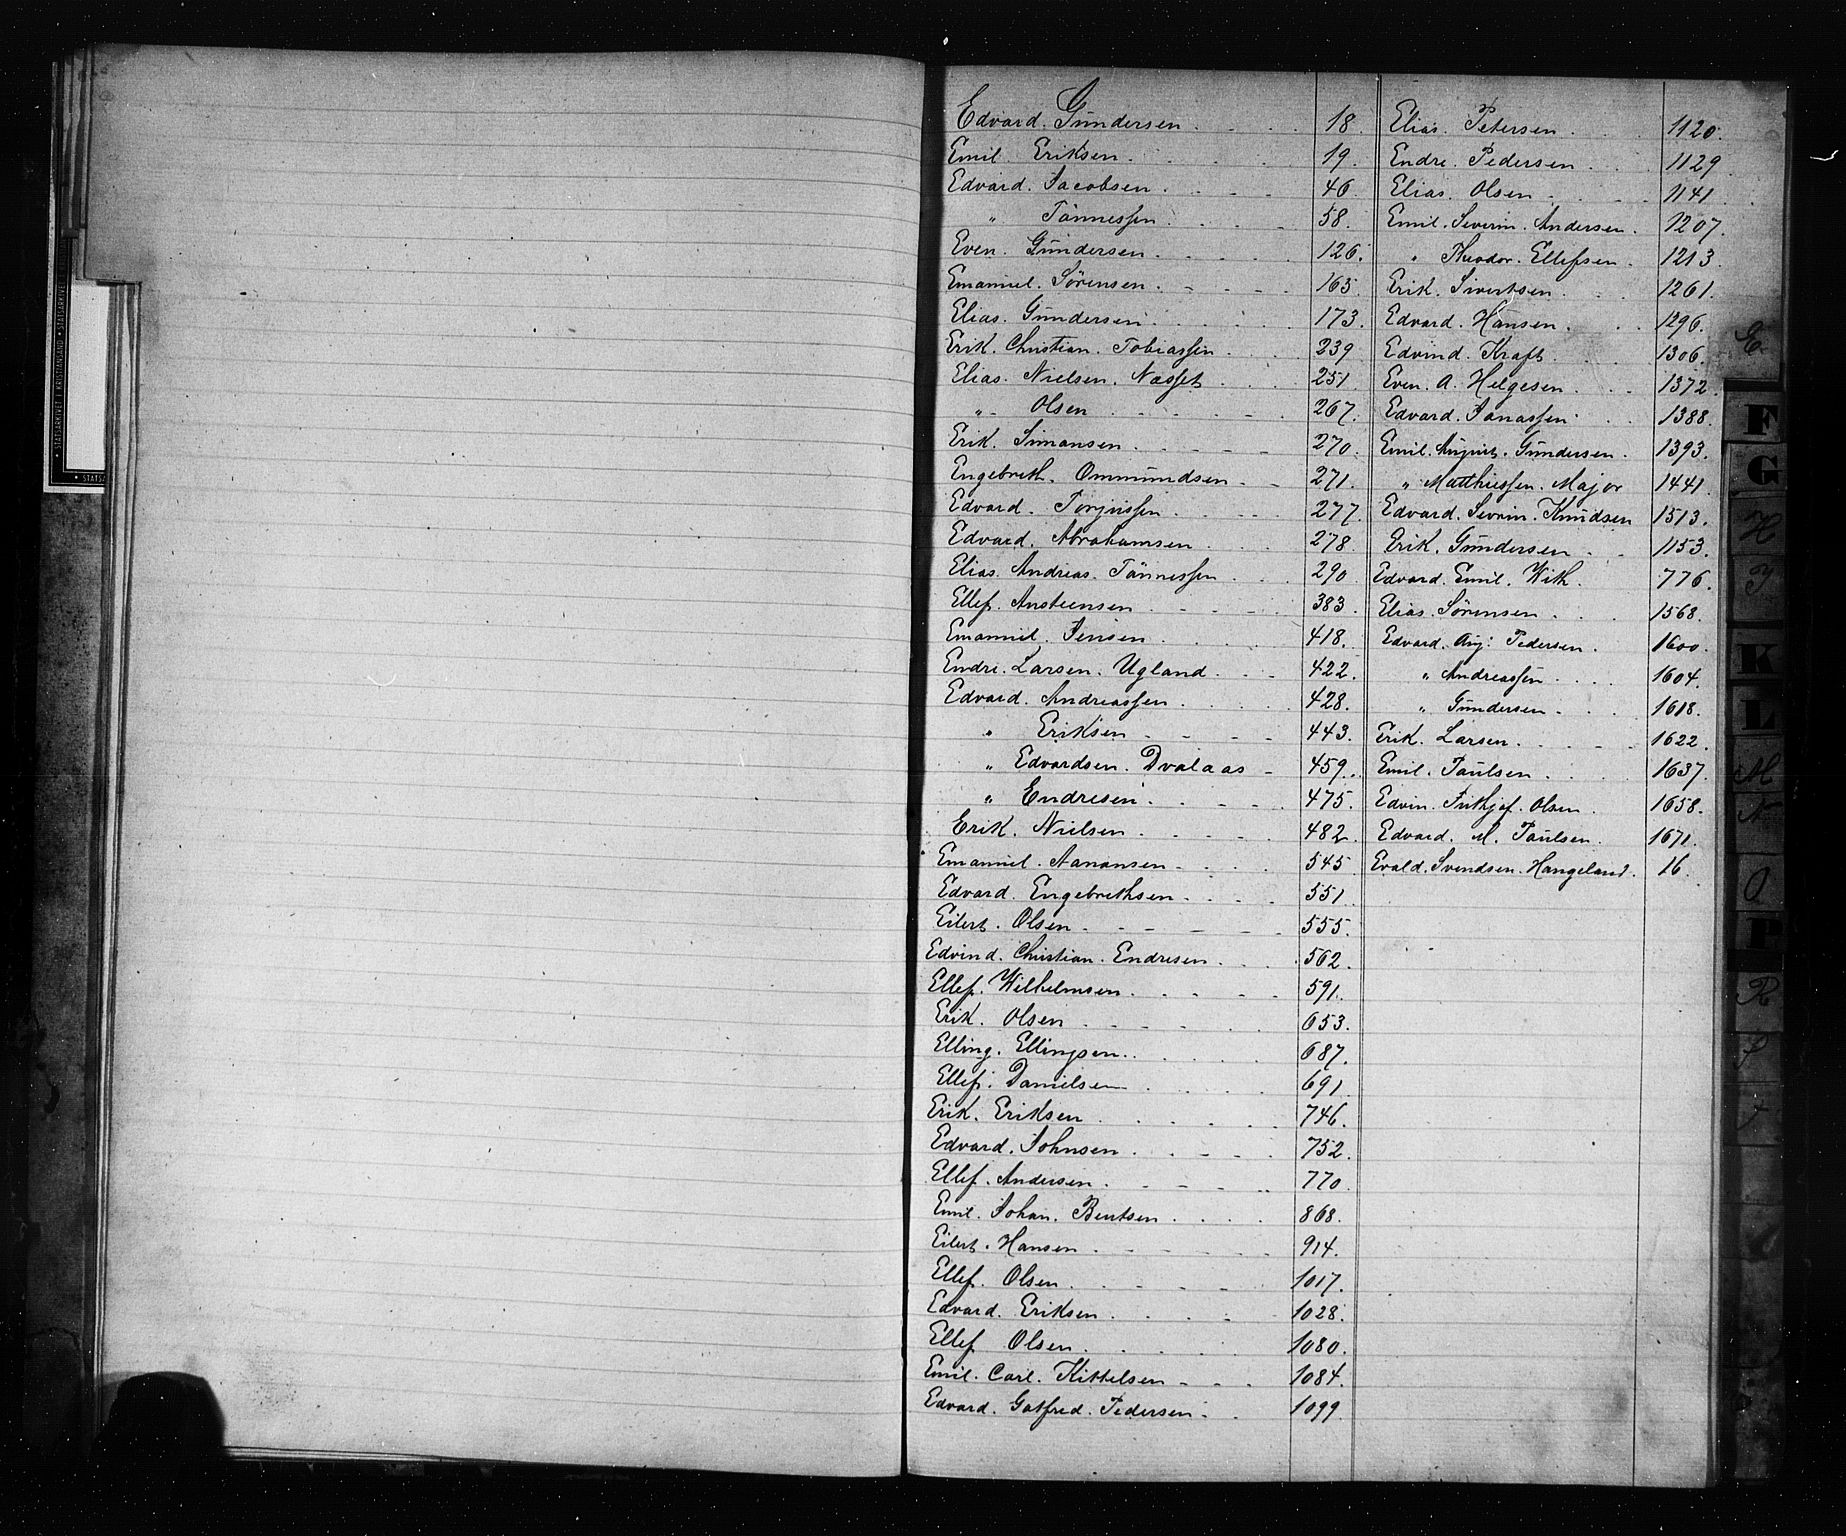 Edvard. Gundersen 18.
Emil. Eriksen. 19.
Edvard. Jacobsen 46
" Tönnessen 58.
Even. Gundersen 126.
Emanuel. Sörensen. 165.
Elias. Gundersen 173.
Erik. Christian. Tobiassen 239
Elias. Nielsen. Næsset 251
" Olsen 267.
Erik. Simonsen 270.
Engebreth. Ommundsen 271.
Edvard. Torjussen 277.
Edvard. Abrahamsen 278.
Elias. Andreas. Tönnessen 290.
Ellef. Austeensen 383.
Emanuel. Jensen 418.
Endre. Larsen. Ugland 422.
Edvard. Andreassen 428.
" Eriksen 443.
" Edvardsen. Dvalaas 459.
" Endresen 475.
Erik. Nielsen 482.
Emanuel. Aanonsen 545
Edvard. Engebrethsen 551
Eilert. Olsen 555.
Edvind. Christian. Endresen 562.
Ellef. Wilhelmsen 591.
Erik. Olsen 653.
Elling. Ellingsen 687.
Ellef. Danielsen 691
Erik. Eriksen 746.
Edvard. Johnsen 752.
Ellef. Andersen 770.
Emil. Johan. Bentsen 868.
Eilert. Hansen 914.
Ellef. Olsen 1017.
Edvard. Eriksen 1028.
Ellef Olsen 1080.
Emil. Carl. Kittelsen 1084.
Edvard. Gotfred. Pedersen 1099.
Elias. Petersen 1120.
Endre. Pedersen 1129
Elias. Olsen 1141.
Emil. Severin. Andersen. 1207.
" Theodor. Ellefsen 1213.
Erik. Sivertsen 1261.
Edvard. Hansen 1296.
Edvind. Kraft 1306.
Even. A. Helgesen 1372
Edvard. Jonassen 1388.
Emil. August. Gundersen 1393.
" Matthiessen. Major 1441.
Edvard. Sevrin. Knudsen 1513.
Erik. Gundersen 1153.
Edvard. Emil. With. 776.
Elias. Sörensen 1568.
Edvard. Aug: Pedersen 1600.
" Andreassen 1604.
" Gundersen 1618.
Erik. Larsen 1622.
Emil. Paulsen 1637.
Edvin. Frithjof. Olsen 1658.
Edvard. M. Paulsen. 1671.
Evald. Svendsen. Hangeland. 16.
E
F
G
H
I
K
L
M
N
O
P
R
S
T
STATSARKIVET I KRISTIANSAND • STATSARKIVET
• STATSA